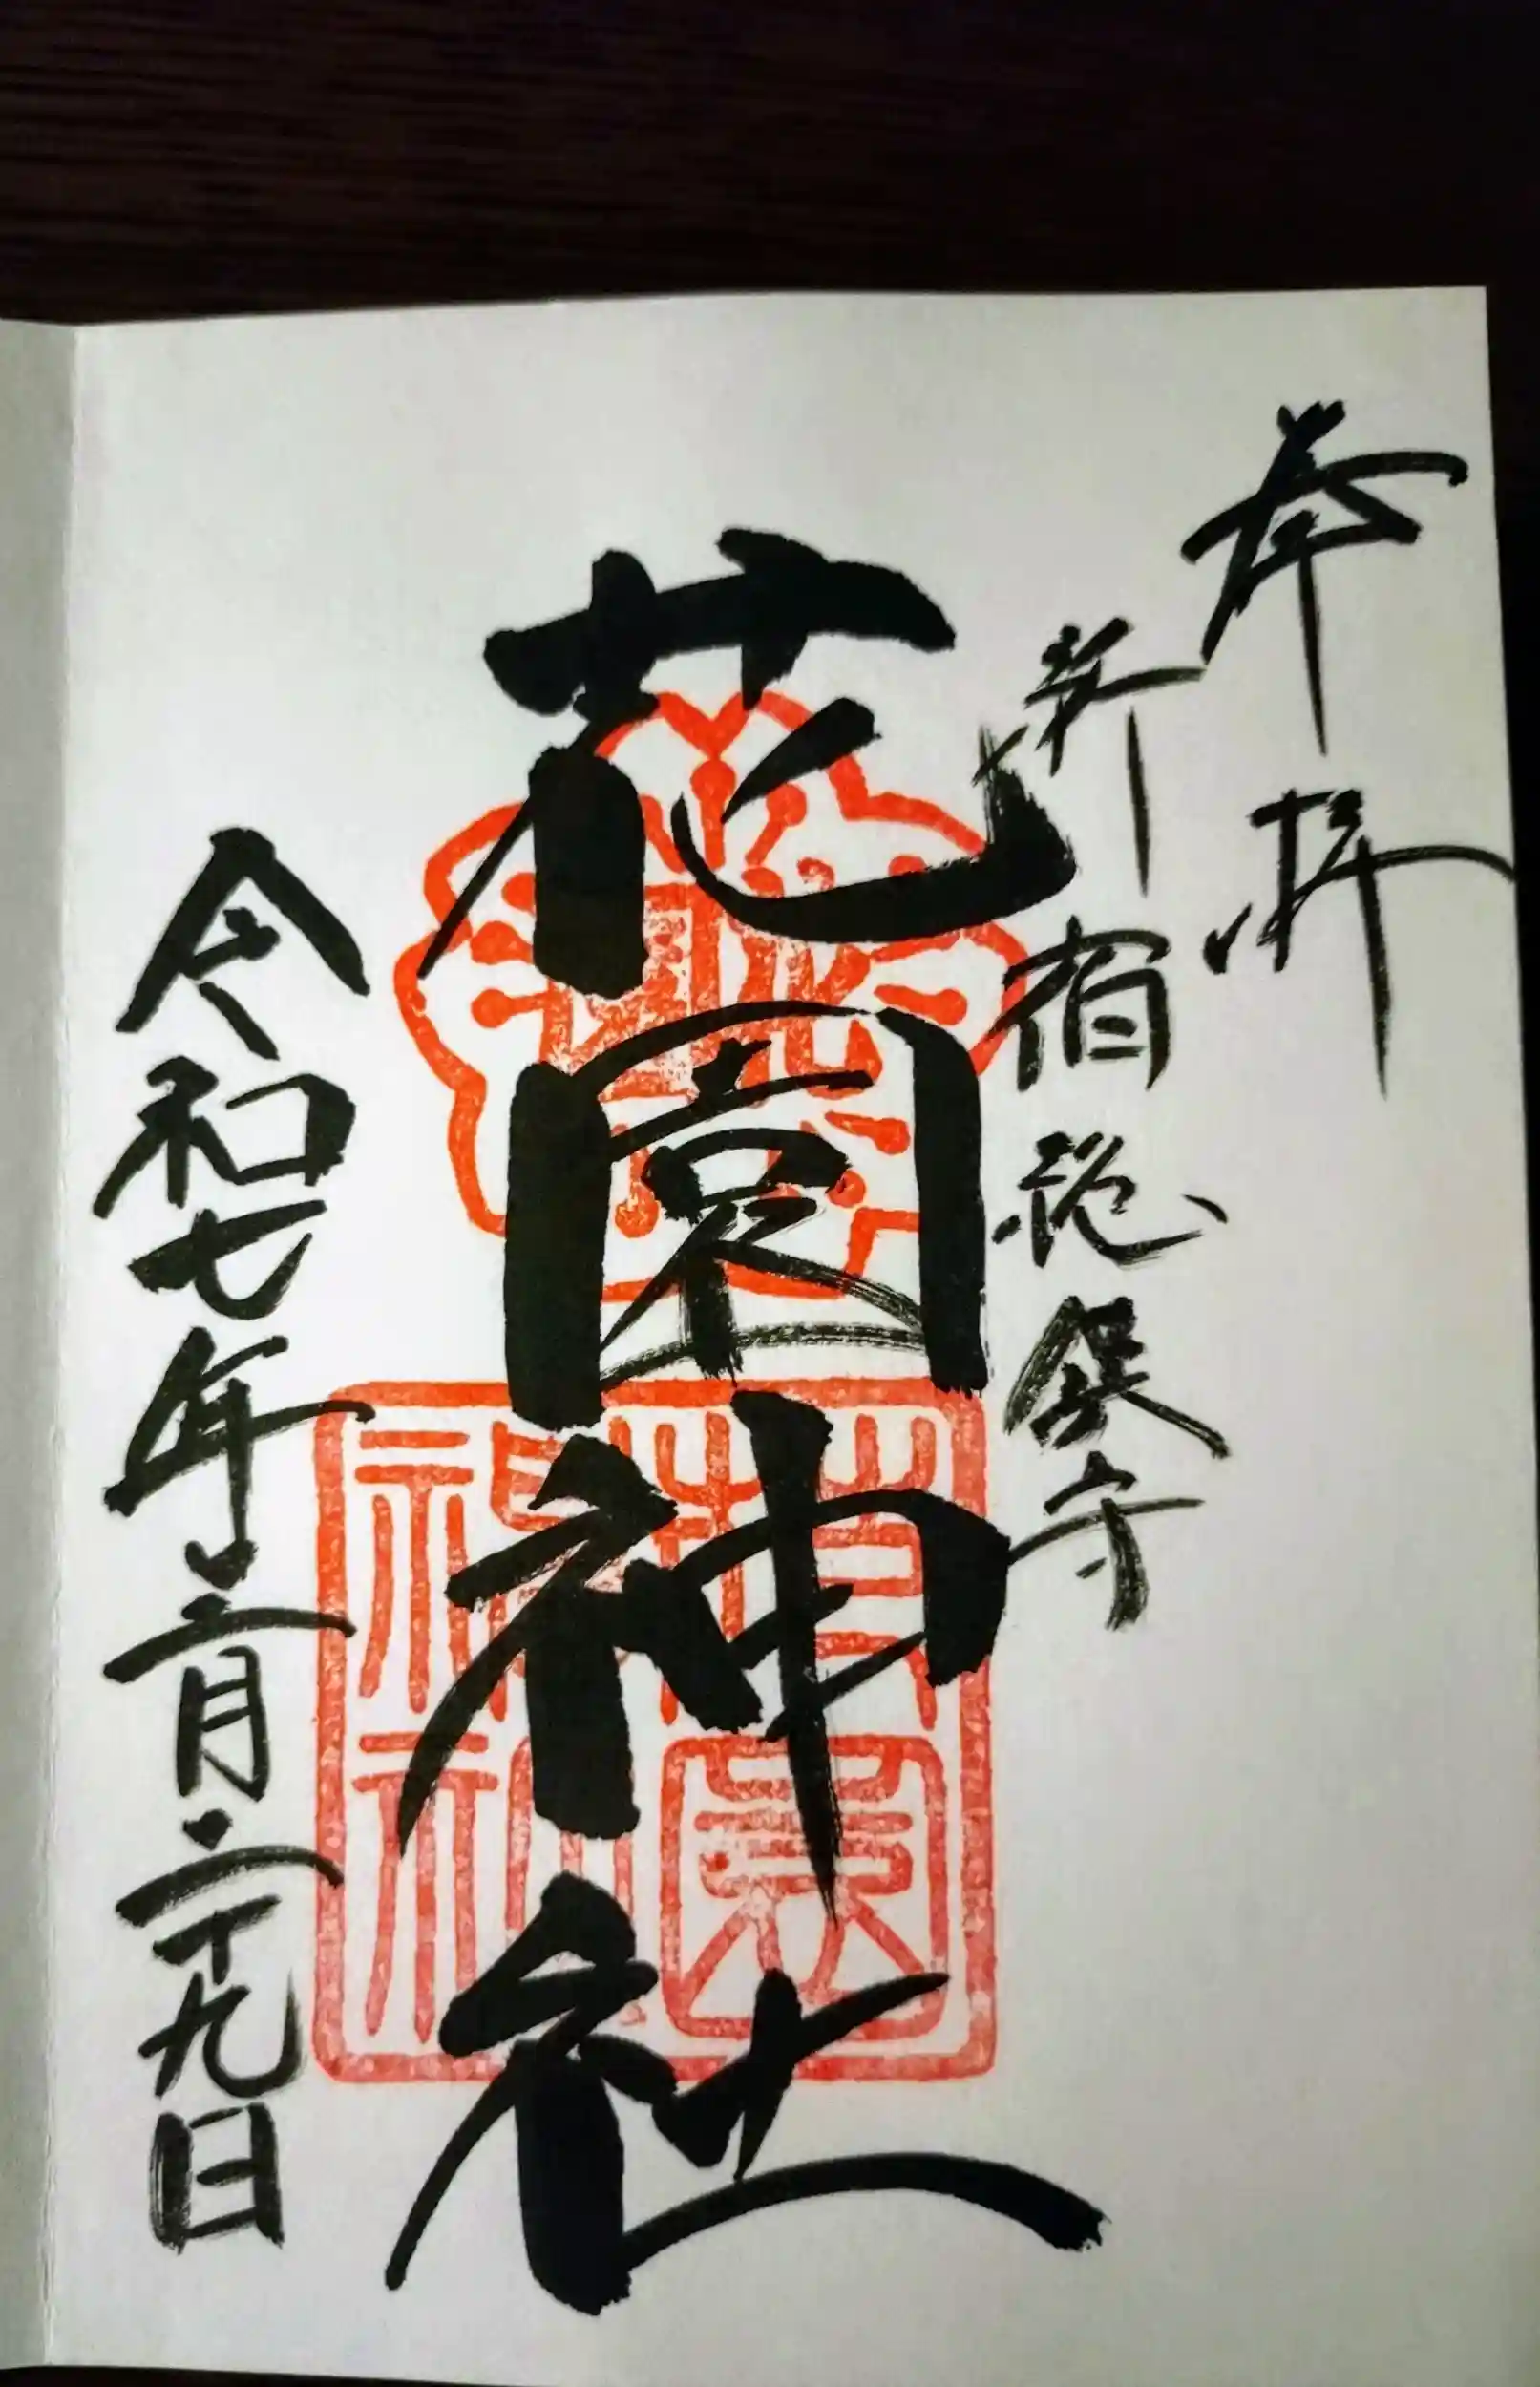 奉拝
新宿総鎮守
花園神社
令和七年三月二十九日